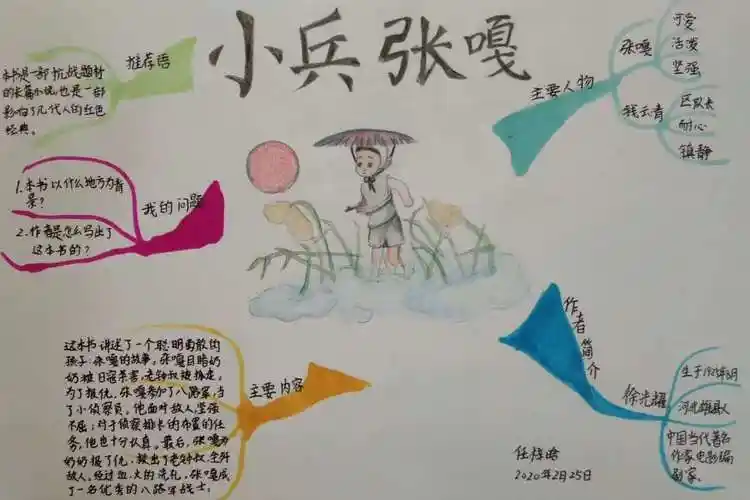 小兵张嘎
推荐语
本书是一部抗战题材
的长篇小说,也是一部
影响了几代人的红色
经典。
我的问题
1.本书以什么地方为背
景?
2.作者是怎么写出了
这本书的?
主要人物
张嘎
可爱
活泼
坚强
钱云青
区队长
耐心
镇静
主要内容
这本书讲述了一个聪明勇敢的
孩子·张嘎的故事。张嘎目睹奶
奶被日寇杀害,老钟叔被捕走。
为了报仇,张嘎参加了八路军,当
了小侦察员。他面对敌人,坚强
不屈;对于侦察排长的布置的任
务,他也十分认真。最后,张嘎为
奶奶报了仇,救出了老钟叔,全歼
敌人。经过血、火的洗礼,张嘎成
了一名优秀的八路军战士。
作者简介
徐光耀
生于1925年8月
河北雄县人
中国当代著名
作家电影编
剧家。
2020年2月25日